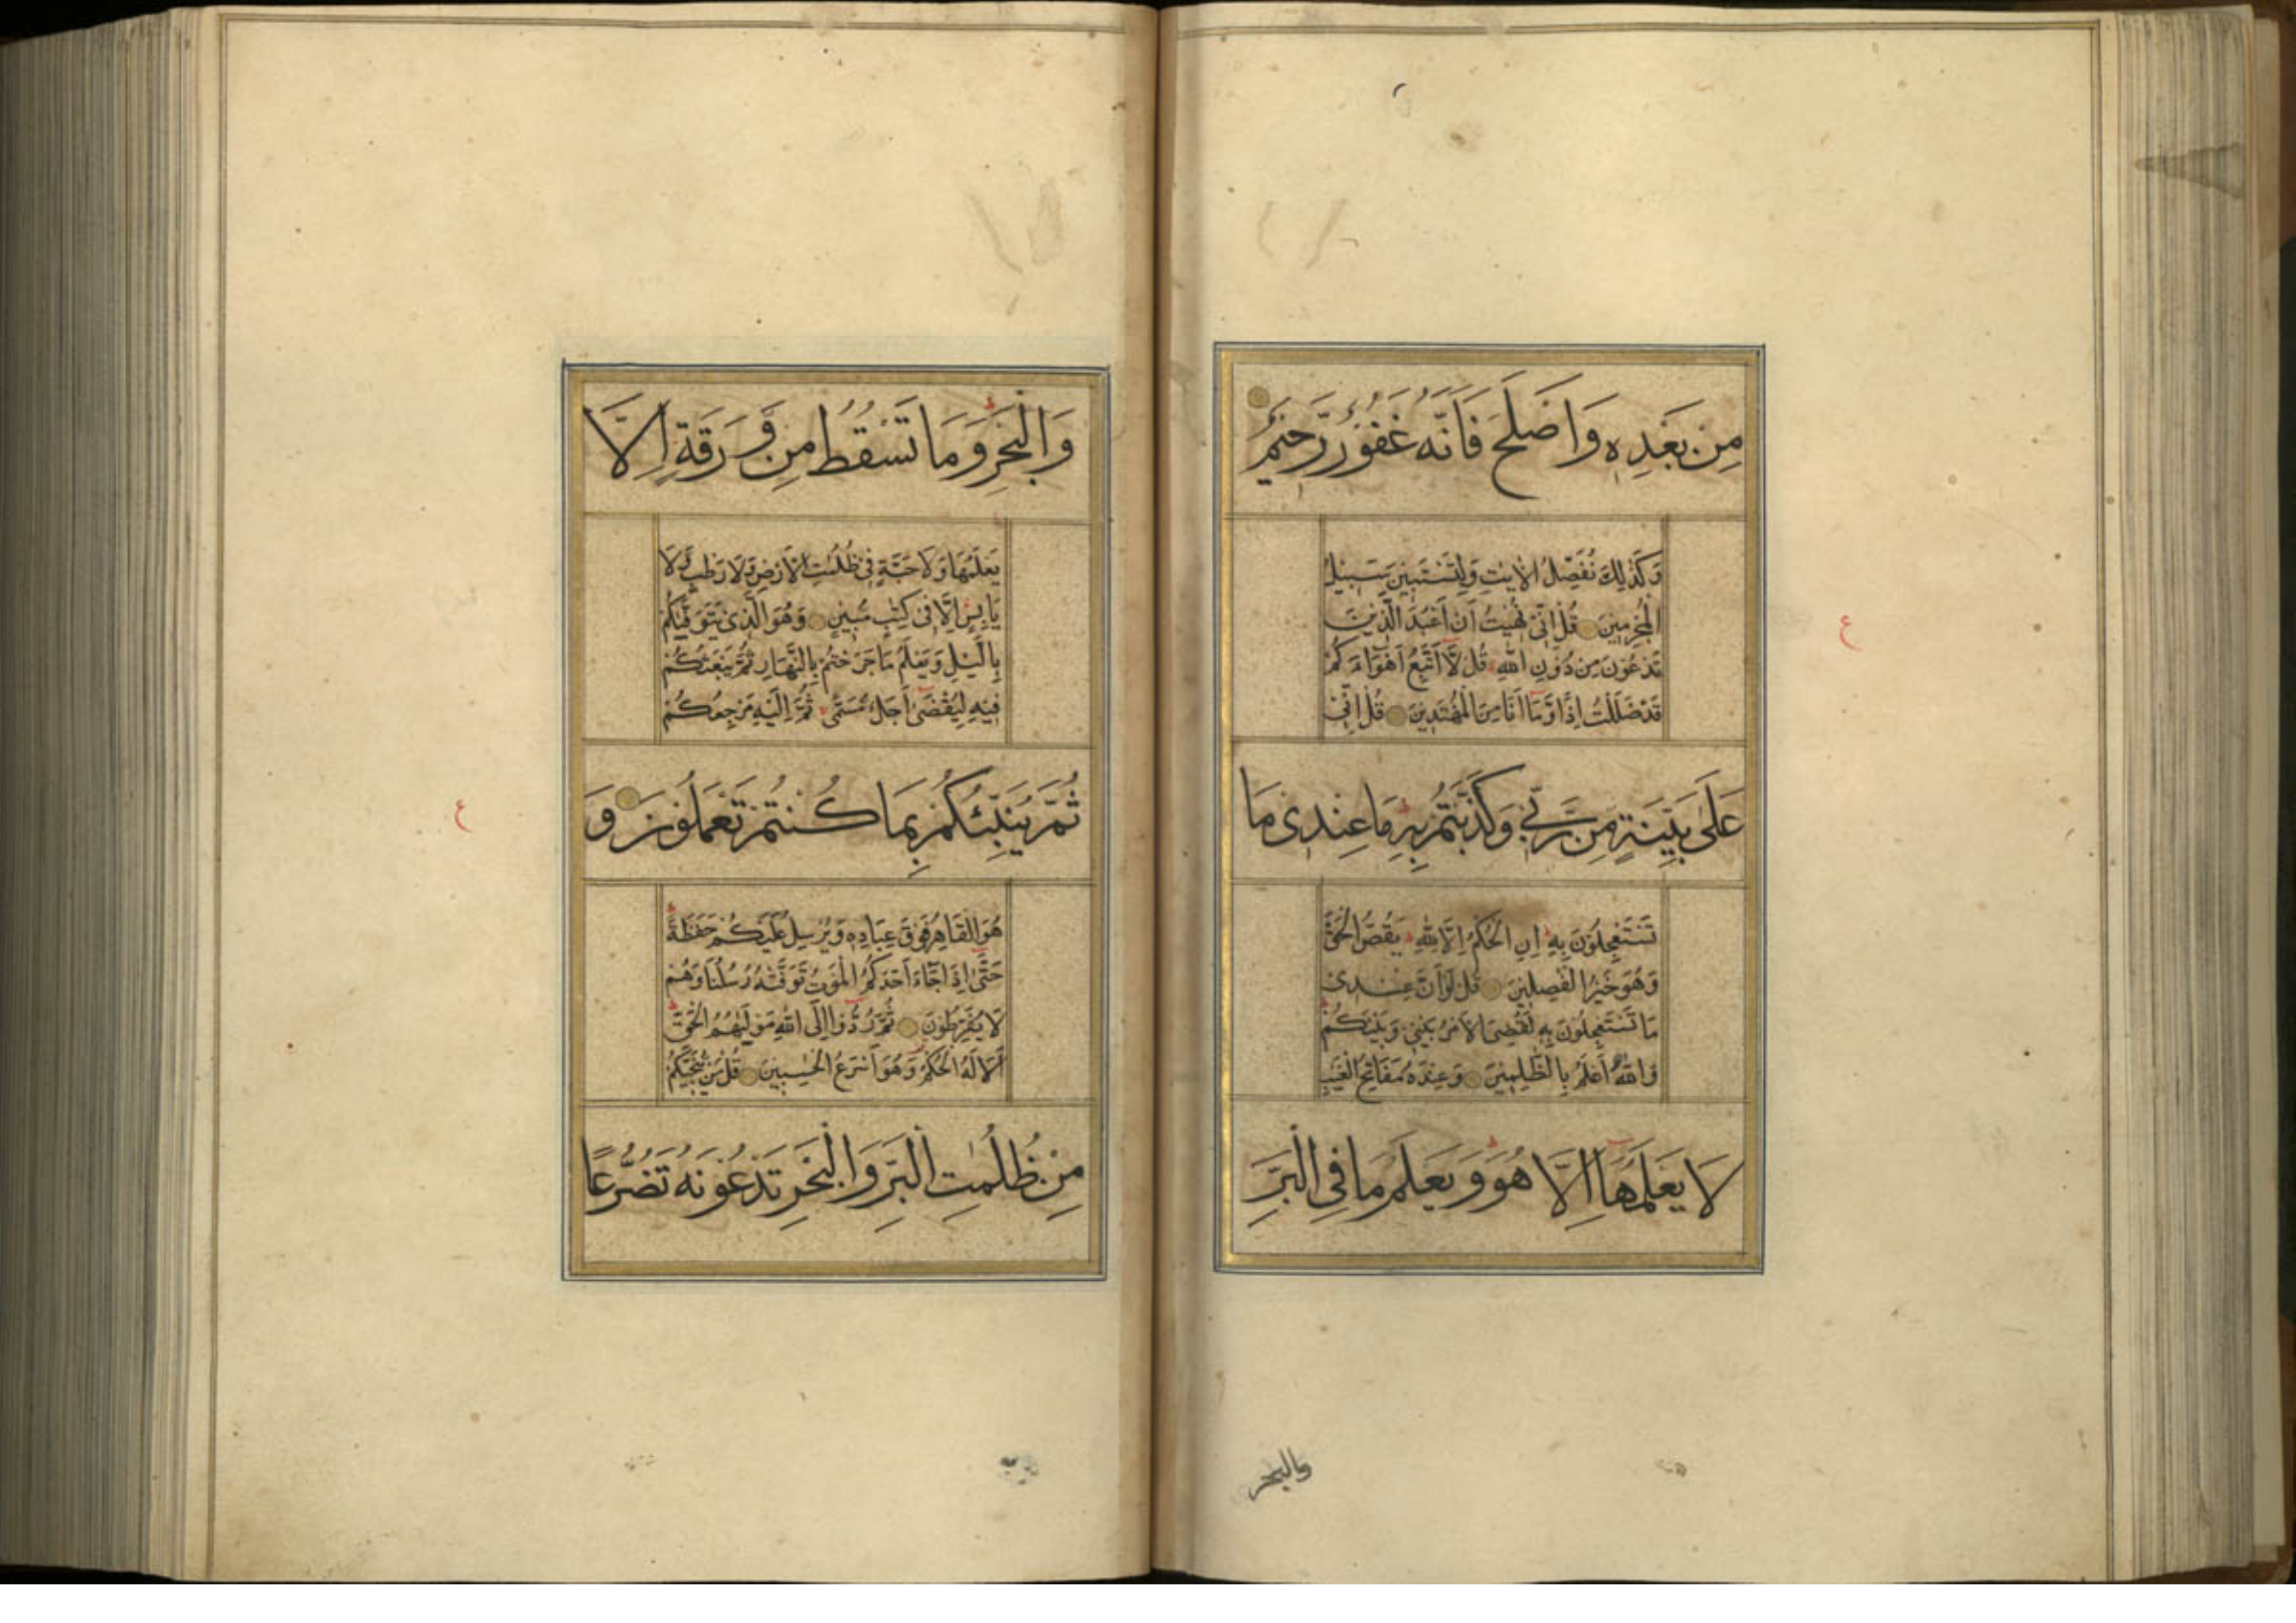 مِنْ بَعْدِهٖ وَاَصْلَحَ فَاَنَّهٗ غَفُوْرٌ رَّحِيْمٌ
وَكَذٰلِكَ نُفَصِّلُ الْاٰيٰتِ وَلِتَسْتَبِيْنَ سَبِيْلُ
الْمُجْرِمِيْنَ قُلْ اِنِّيْ نُهِيْتُ اَنْ اَعْبُدَ الَّذِيْنَ
تَدْعُوْنَ مِنْ دُوْنِ اللّٰهِ ط قُلْ لَّا اَتَّبِعُ اَهْوَآءَكُمْ
قَدْ ضَلَلْتُ اِذًا وَّمَا اَنَا مِنَ الْمُهْتَدِيْنَ قُلْ اِنِّيْ
عَلٰى بَيِّنَةٍ مِّنْ رَّبِّيْ وَكَذَّبْتُمْ بِهٖ ط مَا عِنْدِيْ مَا
تَسْتَعْجِلُوْنَ بِهٖ ط اِنِ الْحُكْمُ اِلَّا لِلّٰهِ ط يَقُصُّ الْحَقَّ
وَهُوَ خَيْرُ الْفٰصِلِيْنَ قُلْ لَوْ اَنَّ عِنْدِيْ
مَا تَسْتَعْجِلُوْنَ بِهٖ لَقُضِيَ الْاَمْرُ بَيْنِيْ وَبَيْنَكُمْ ط
وَاللّٰهُ اَعْلَمُ بِالظّٰلِمِيْنَ وَعِنْدَهٗ مَفَاتِحُ الْغَيْبِ
لَا يَعْلَمُهَا اِلَّا هُوَ ط وَيَعْلَمُ مَا فِي الْبَرِّ
والبحر
ع
وَالْبَحْرِ ط وَمَا تَسْقُطُ مِنْ وَّرَقَةٍ اِلَّا
يَعْلَمُهَا وَلَا حَبَّةٍ فِيْ ظُلُمٰتِ الْاَرْضِ وَلَا رَطْبٍ وَّلَا
يَابِسٍ اِلَّا فِيْ كِتٰبٍ مُّبِيْنٍ وَهُوَ الَّذِيْ يَتَوَفّٰيكُمْ
بِالَّيْلِ وَيَعْلَمُ مَا جَرَحْتُمْ بِالنَّهَارِ ثُمَّ يَبْعَثُكُمْ
فِيْهِ لِيُقْضٰى اَجَلٌ مُّسَمًّى ثُمَّ اِلَيْهِ مَرْجِعُكُمْ
ثُمَّ يُنَبِّئُكُمْ بِمَا كُنْتُمْ تَعْمَلُوْنَ وَ
هُوَ الْقَاهِرُ فَوْقَ عِبَادِهٖ وَيُرْسِلُ عَلَيْكُمْ حَفَظَةً ط
حَتّٰى اِذَا جَآءَ اَحَدَكُمُ الْمَوْتُ تَوَفَّتْهُ رُسُلُنَا وَهُمْ
لَا يُفَرِّطُوْنَ ثُمَّ رُدُّوْا اِلَى اللّٰهِ مَوْلٰيهُمُ الْحَقِّ ط
اَلَا لَهُ الْحُكْمُ وَهُوَ اَسْرَعُ الْحٰسِبِيْنَ قُلْ مَنْ يُّنَجِّيْكُمْ
مِنْ ظُلُمٰتِ الْبَرِّ وَالْبَحْرِ تَدْعُوْنَهٗ تَضَرُّعًا
ع